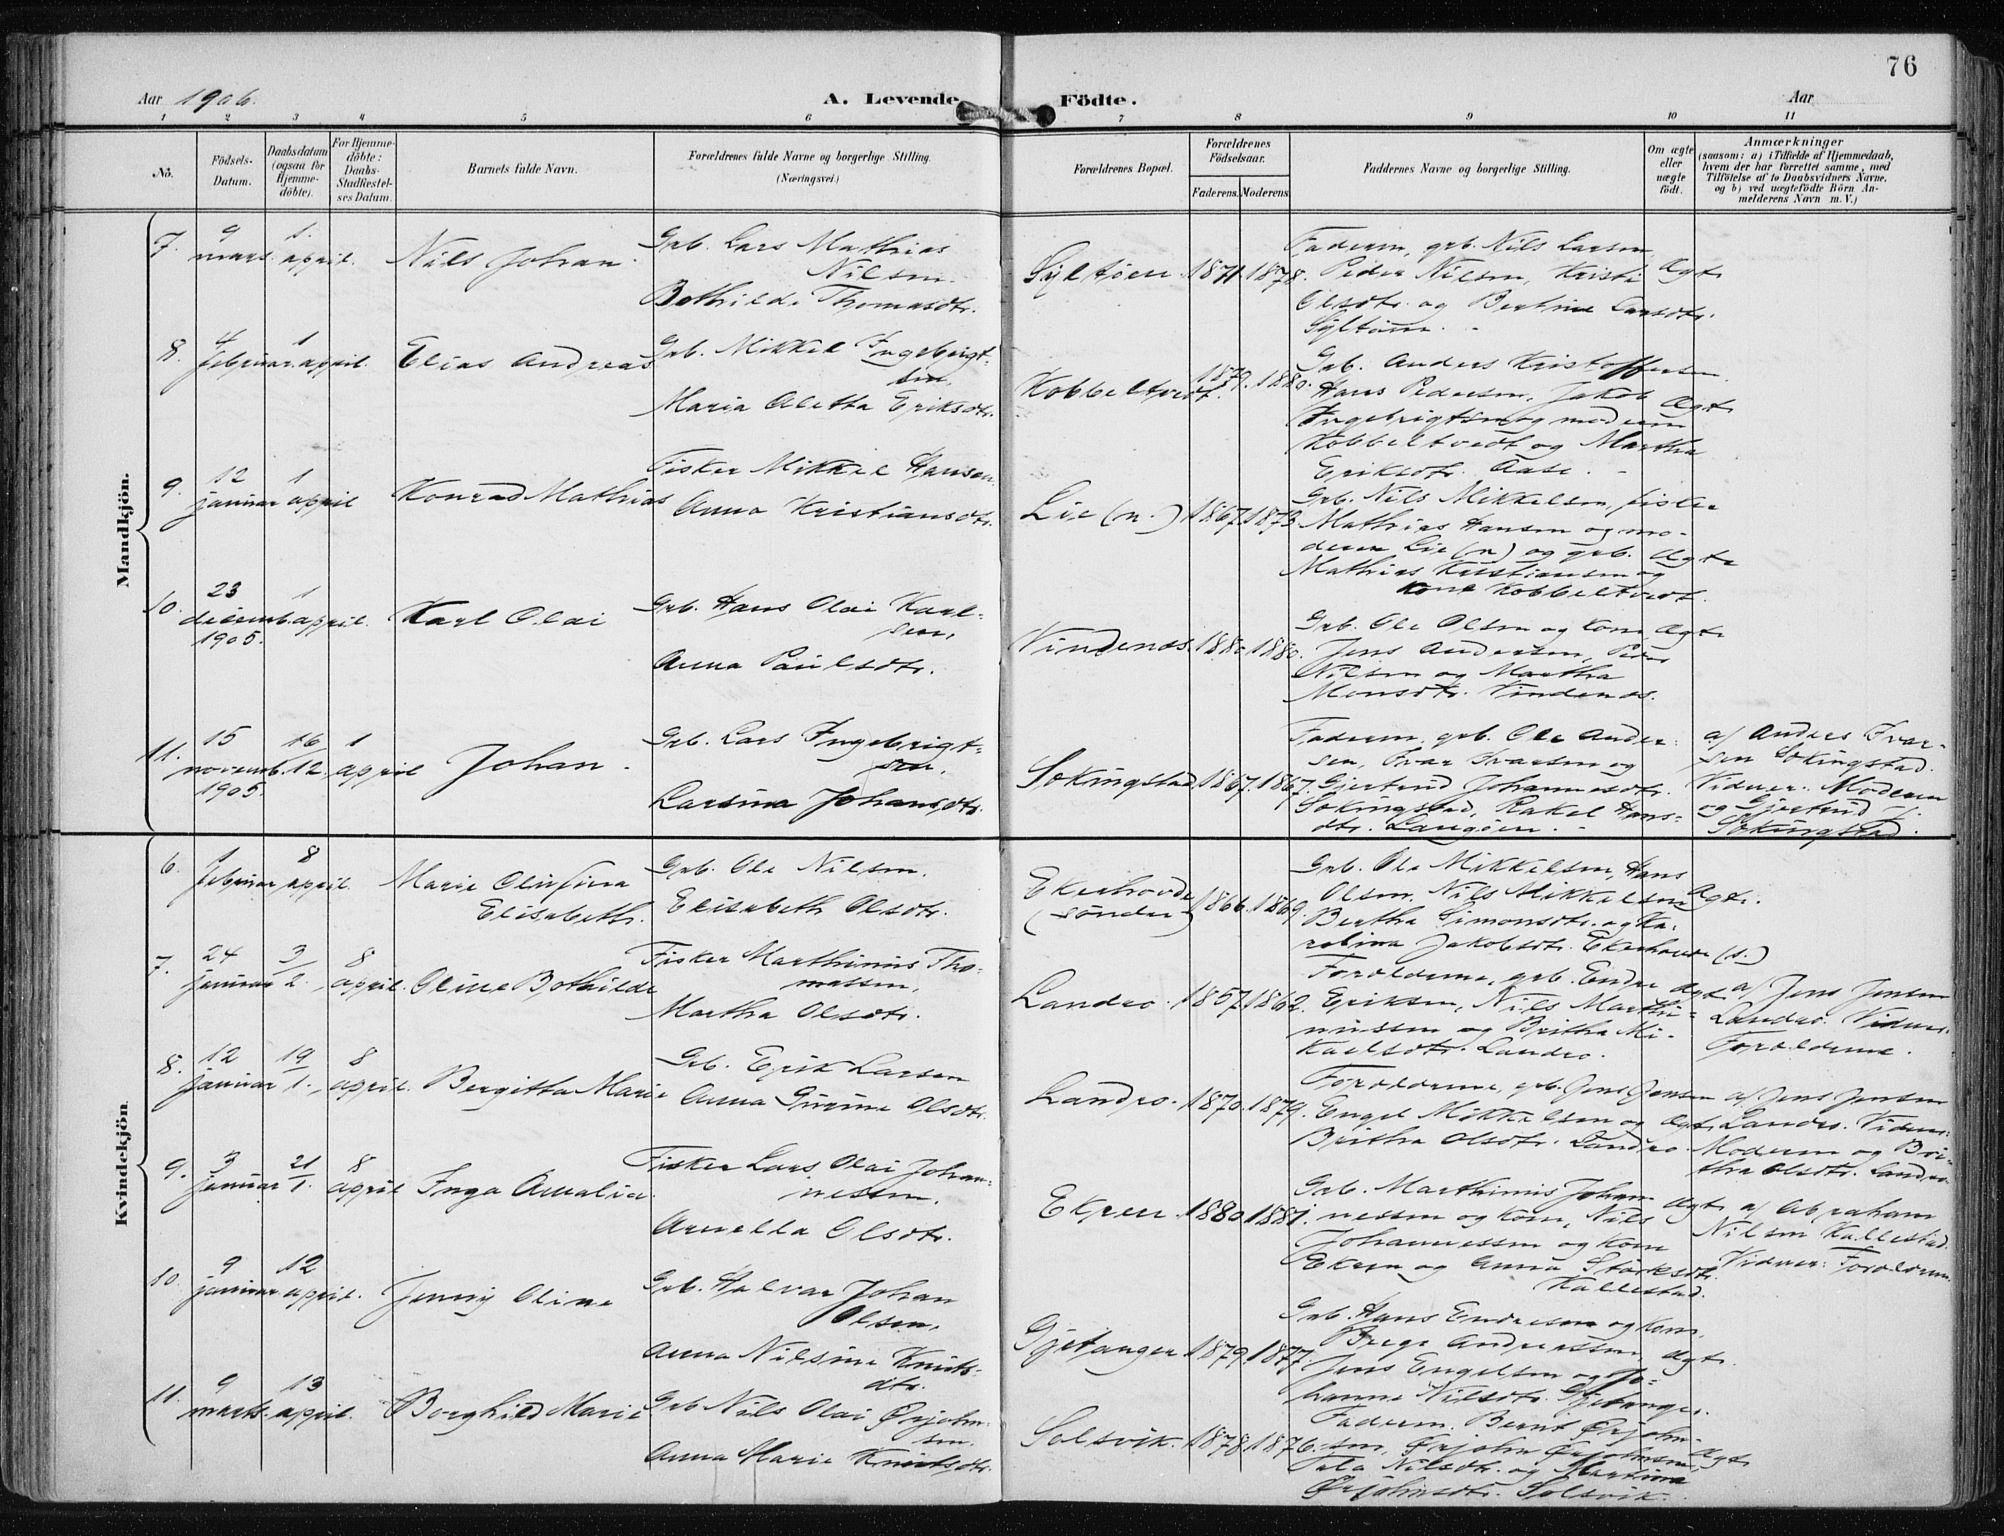 76
Aar 1906.
A. Levende Födte.
Aar
1 2 3 4 5 6 7 8 9 10 11
Nö.
Födsels-Datum.
Daabsdatum (ogsaa for Hjemme-döbte).
For Hjemme-döbte: Daabs-Stadfæstel-ses Datum.
Barnets fulde Navn.
Forældrenes fulde Navne og borgerlige Stilling. (Næringsvei.)
Forældrenes Bopæl.
Forældrenes Födselsaar.
Faderens. Moderens.
Faddernes Navne og borgerlige Stilling.
Om ægte eller uægte födt.
Anmærkninger
(saasom: a) i Tilfælde af Hjemmedaab,
hvem der har forrettet samme, med
Tilföielse af to Daabsvidners Navne,
og b) ved uægtefödte Börn An-
melderens Navn m. V.)
Mandkjön.
7. 9 mars. 1. april. Nils Johan.
Grb. Lars Mathias
Nilsen.
Bothilde Thomasdtr.
Syltöen. 1871. 1878.
Faderen, grb. Nils Larsen,
Peder Nilsen, Kristi
Olsdtr. og Bertine Larsdtr.
Syltöen.
Ægte
8. 4 februar. 1 april. Elias Andreas
Grb. Mikkel Ingebrigt-
sen,
Maria Aletta Eriksdtr.
Kobbeltvedt. 1879. 1880.
Grb. Anders Kristoffersen.
Hans Pedersen, Jakob
Ingebrigtsen og moderen
Kobbeltvedt og Martha
Eriksdtr. Aase.
Ægte
9. 12 januar 1 april Konrad Mathias
Fisker Mikkel Hansen.
Anna Kristiansdtr.
Lie (n.) 1867. 1873.
Grb. Nils Mikkelsen, fisker
Mathias Hansen og mo-
deren Lie (n) og grb.
Mathias Kristiansen og
kone Kobbeltvedt.
Ægte
10. 23 decemb. 1905. 1 april. Karl Olai
Grb. Hans Olai Karl-
sen,
Anna Paulsdtr.
Vindenes. 1880. 1880.
Grb. Ole Olsen og kone
Jens Andersen, Peder
Nilsen og Martha
Monsdtr. Vindenes.
Ægte
11. 15 novemb. 1905. 16/12. 1 april Johan.
Grb. Lars Ingebrigt-
sen,
Larsina Johansdtr.
Sekingstad 1867. 1867.
Faderen, grb. Ole Ander-
sen, Ivar Ivarsen og
Gjertrud Johannesdtr.
Sekingstad, Rakel Hans-
dtr. Langöen.
af Anders Ivar-
sen Sekingstad.
Vidner: Moderen
og Gjertrud J.
Sekingstad.
Kvindekjön.
6. 1 februar 8 april. Marie Olufina
Elisabeth.
Grb. Ole Nilsen.
Elisabeth Olsdtr.
Ekerhovde (söndre) 1866. 1869.
Grb. Ole Mikkelsen, Hans
Olsen, Nils Mikkelsen
Bertha Simonsdtr. og Ka-
rolina Jakobsdtr. Ekerhovde (s.)
Ægte.
7. 24 januar 3/2. 8 april. Oline Bothilde
Fisker Marthinus Tho-
massen,
Martha Olsdtr.
Landro. 1857. 1862.
Foroldrene, grb. Endre
Eriksen, Nils Marthi-
nussen og Britha Mi-
kaelsdtr. Landro.
Ægte
af Jens Jensen
Landro. Vidner:
Foroldrene.
8. 12 januar 19/1. 8 april. Bergitta Marie
Grb. Erik Larsen
Anna Gurine Olsdtr.
Landro. 1870. 1879.
Foroldrene, grb. Jens Jensen
Engel Mikkelsen og
Britha Olsdtr. Landro
Ægte
af Jens Jensen
Landro. Vidner:
Moderen og Bri-
tha Olsdtr. Landro
9. 3 januar 21/1. 8 april Inga Amalia.
Fisker Lars Olai Johan-
nesen,
Arnella Olsdtr.
Ekren. 1880. 1881.
Grb. Marthinus Johan
nessen og kone, Nils
Johannessen og kone
Ekren og Anna Störksdtr.
Kallestad.
Ægte
af Abraham
Nilsen Kallestad.
Vidner: Foroldrene.
10. 9 januar 12 april. Jenny Oline
Grb. Halvar Johan
Olsen,
Anna Nilsine Knuts-
dtr.
Gjetanger 1879. 1877.
Grb. Hans Endresen og kone,
Berge Andreassen,
Jens Engelsen og Jo-
hanne Nilsdtr. Gjetanger.
Ægte.
11. 9 marts. 13 april. Borghild Marie
Grb Nils Olai Ørjohn-
sen.
Anna Marie Knutsdtr.
Solsvik. 1878. 1876.
Faderen. Bernt Ørjohn-
sen, Ørjohn Ørjohnsen,
Nilsdtr. og Martina
Ørjohnsdtr. Solsvik.
Ægte